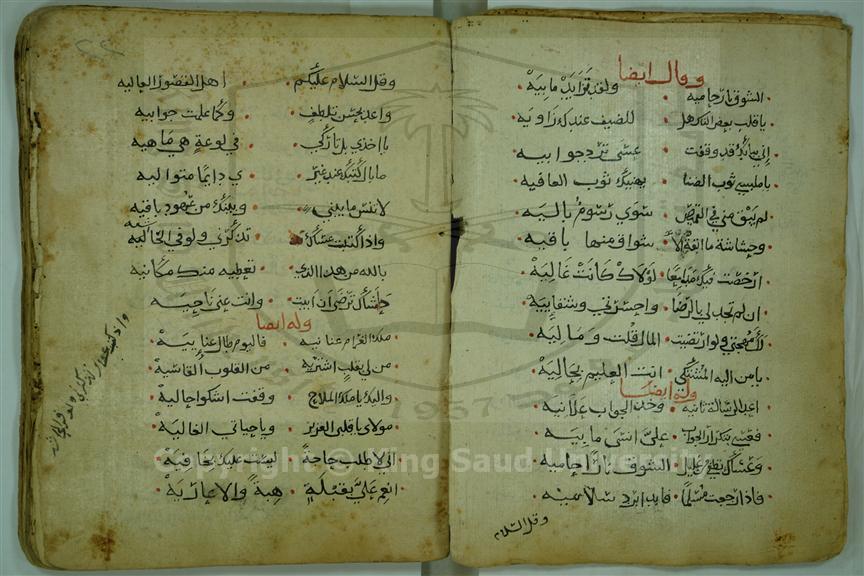 وقال ايضا
الشوق نار حاميه ولقد تزايد ما بيه
يا قلب بعض الناس هل للضيف عندك زاويه
إني ببابك قد وقفت عسى ترد جوابيه
يا ملبسي ثوب الضنا يهنيك ثوب العافيه
لم يبق مني في القميص سوى رسوم باليه
وحشاشة ما ابقت الا شواق منها باقيه
ارخصت فيك مدامعا لولاك كانت غاليه
ان لم تجد لي بالرضا واحسرتي وشقاييه
لك مهجتي ولو ارتضيت المال قلت وماليه
يا من اليه المشتكى انت العليم بحاليه
وله ايضا
اعد الرسالة ثانيه وخذ الجواب علانيه
فعسى بتكرار الجواب عليّ انسى ما بيه
وعساك تطفي غليل الشوق نارا حاميه
فاذا رجعت مسلما فابد برد سلاميه
وقل السلام
وقل السلام عليكم أهل القصور العاليه
واعد بحسن تلطف وكما علمت جوابيه
يا اخذي بل تاركي في لوعة هي ما هيه
ما بال كتبك عند غير ي دايما متواليه
لا تنس ما بيني وبينك من عهود باقيه
واذا كتبت عساك تذكرني ولو في الحاشيه
بالله من هذا الذي تعطيه منك مكانيه
حاشاك ترضى ان ابيت وانت عني ناحيه
وله ايضا
ملك الغرام عنانيه فاليوم طال عناييه
من لي بقلب اشتريه من القلوب القاسيه
واليك يا ملك الملاح وقفت اشكو حاليه
مولاي يا قلبي العزيز ويا حياتي الغاليه
اني لاطلب حاجة ليست عليك بخافيه
انعم عليّ بقبلة هبة والا عاريه
Copyright © King Saud University
1957